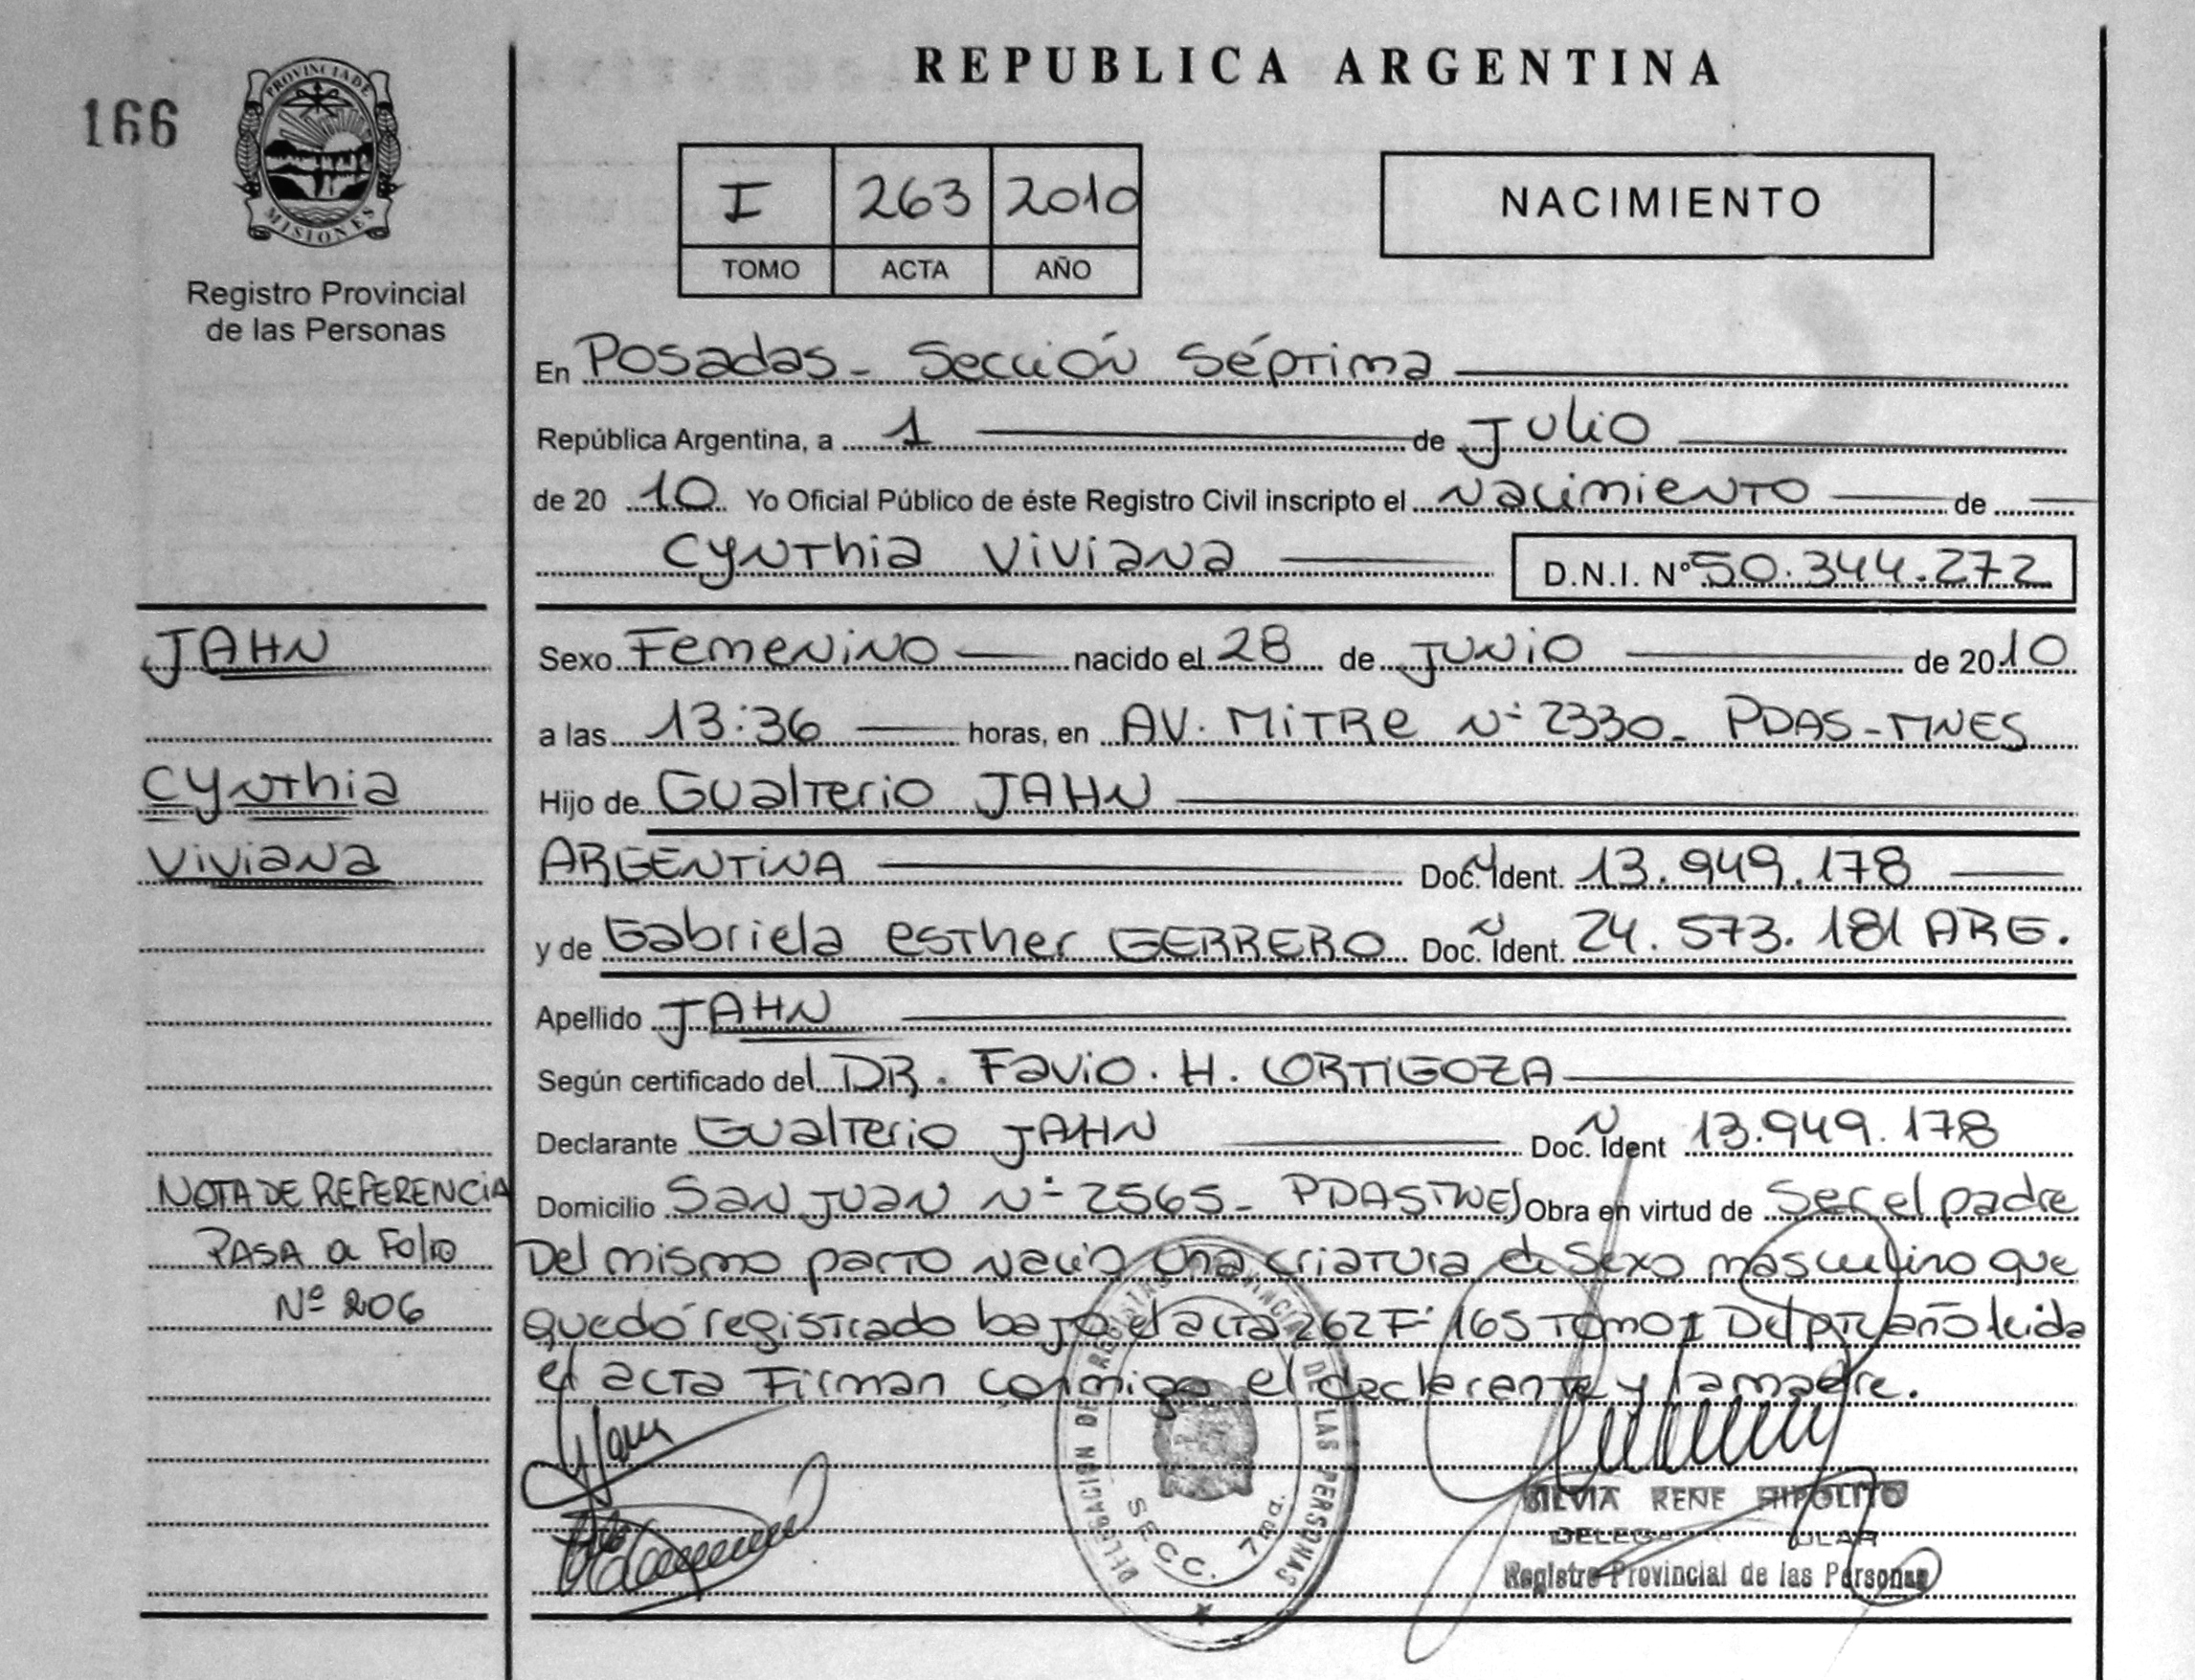 REPUBLICA ARGENTINA
166
PROVINCIA DE MISIONES
Registro Provincial
de las Personas
I 263 2010
TOMO ACTA AÑO
NACIMIENTO
En Posadas - Sección Séptima
República Argentina, a 1 de Julio
de 20 10 Yo Oficial Público de éste Registro Civil inscripto el Nacimiento de
Cynthia Viviana D.N.I. Nº 50.344.272
JAHN
Cynthia
Viviana
NOTA DE REFERENCIA
PASA a Folio
Nº 206
Sexo Femenino nacido el 28 de Junio de 2010
a las 13:36 horas, en AV. Mitre Nº 2330 - PDAS - MNES
Hijo de Gualterio JAHN
ARGENTINA Doc. Ident. 13.949.178
y de Gabriela esther GERRERO Doc. Ident. 24.573.181 ARG.
Apellido JAHN
Según certificado del DR. Favio. H. ORTIGOZA
Declarante Gualterio JAHN Doc. Ident 13.949.178
Domicilio San Juan Nº 2565 - PDAS MNES Obra en virtud de Ser el padre
Del mismo parto nació una criatura de Sexo masculino que
quedó registrado bajo el acta 262 Fº 165 Tomo I Del pte año leida
el acta Firman conmigo el declarante y la madre.
DELEGACION DE REGISTRO PROVINCIAL DE LAS PERSONAS
SECC. 7ma.
SILVIA RENE HIPOLITO
Registro Provincial de las Personas